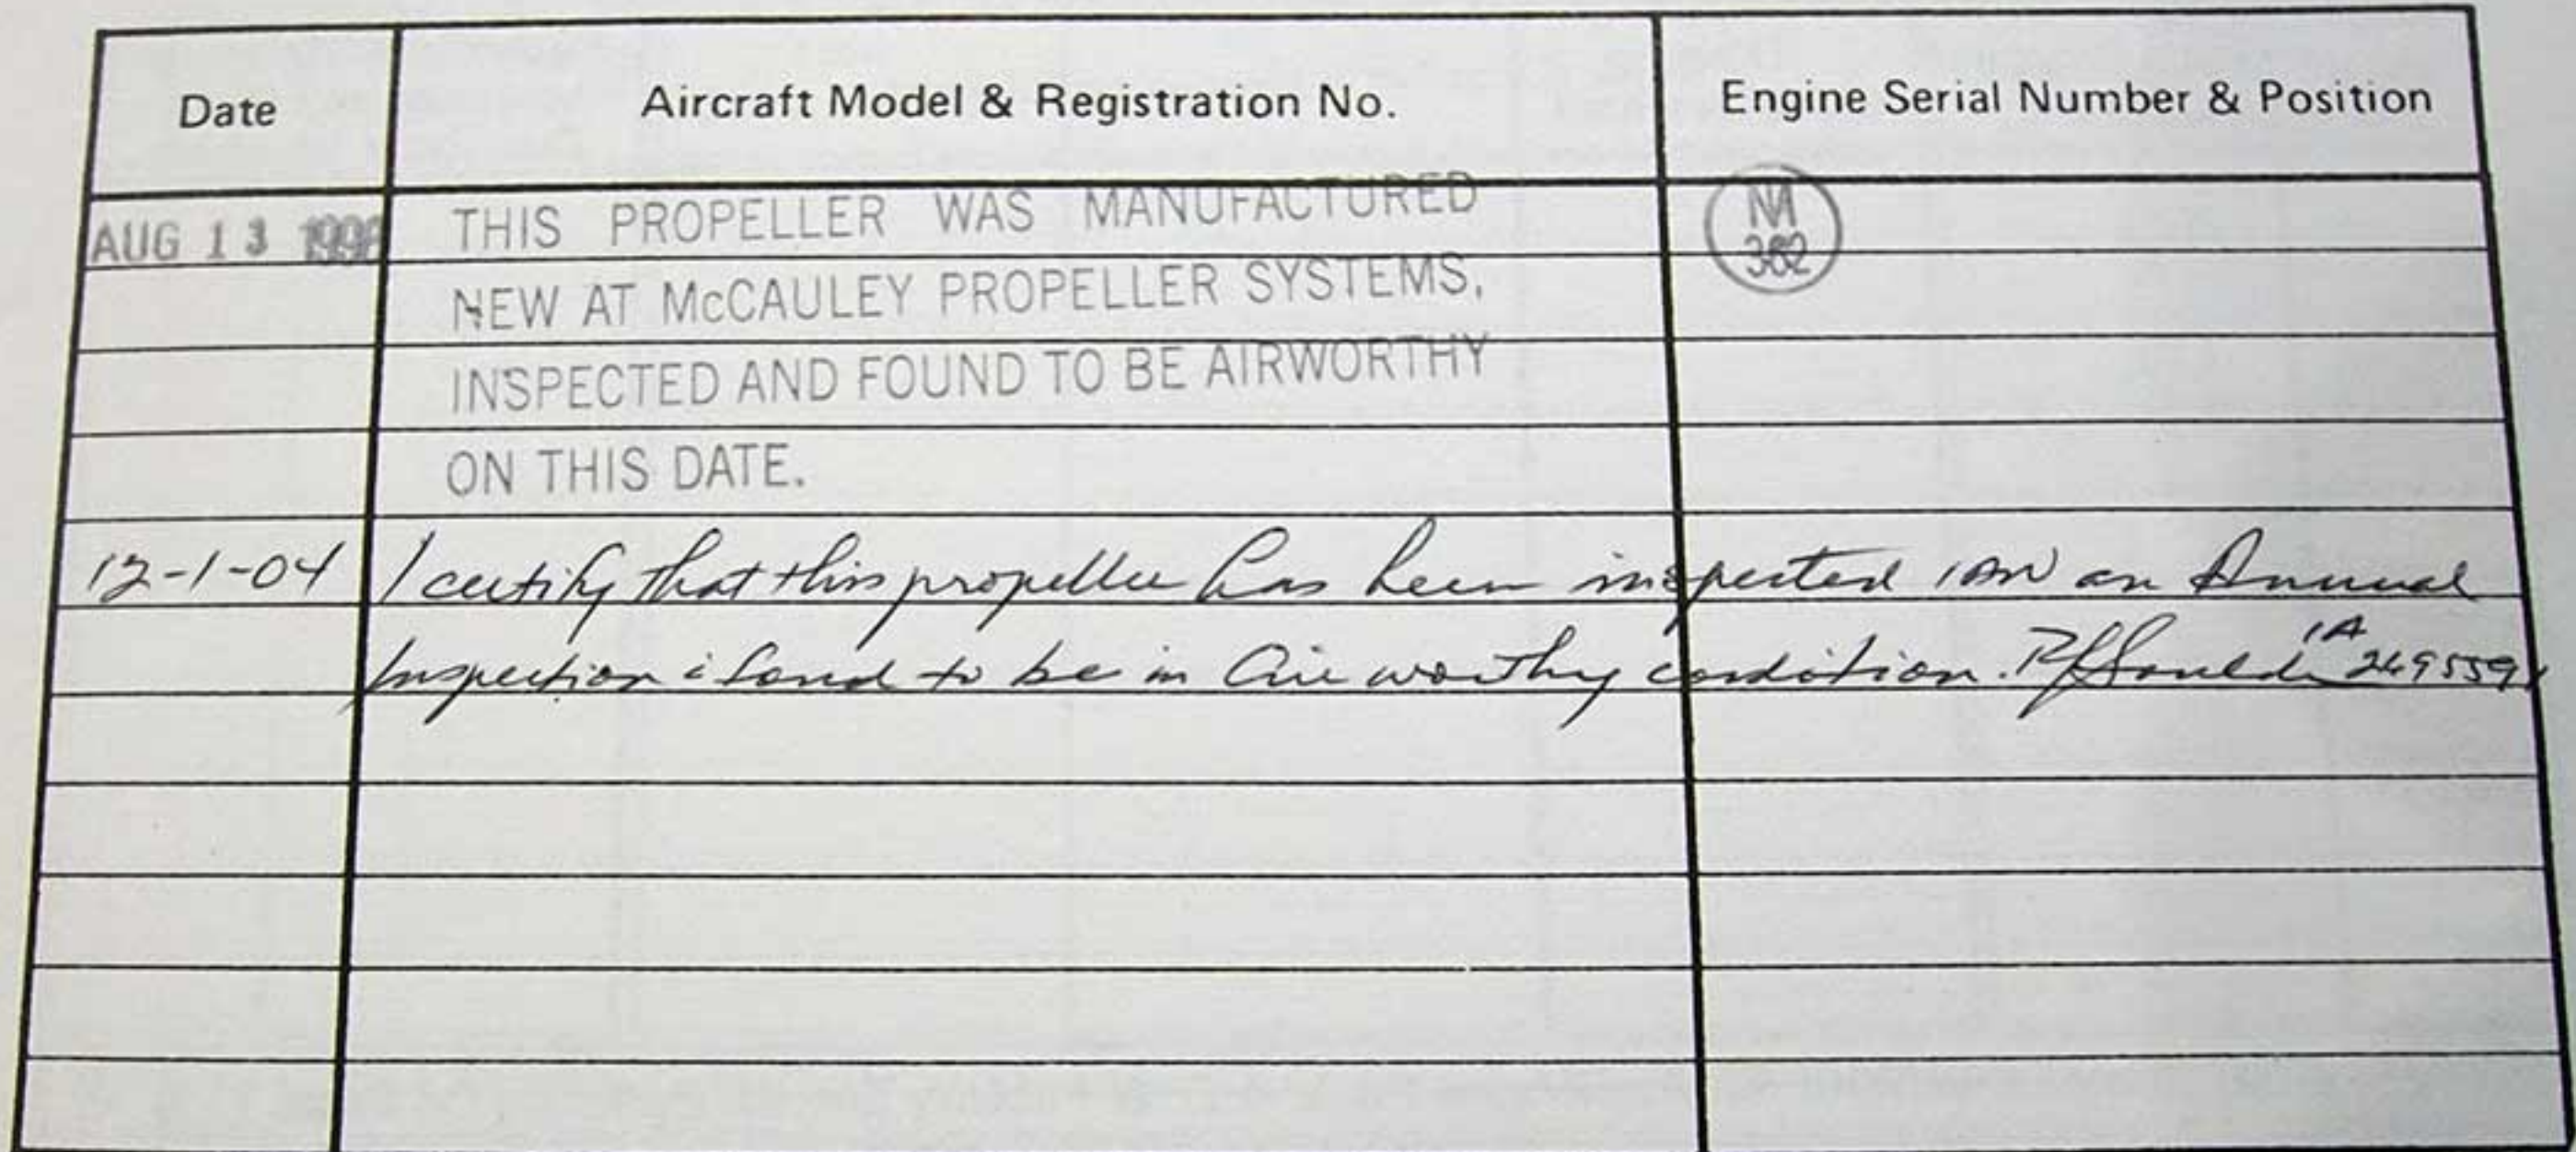 Date Aircraft Model & Registration No. Engine Serial Number & Position
AUG 13 1998 THIS PROPELLER WAS MANUFACTURED
NEW AT McCAULEY PROPELLER SYSTEMS,
INSPECTED AND FOUND TO BE AIRWORTHY
ON THIS DATE.
12-1-04 I certify that this propeller has been inspected IAW an Annual
Inspection & found to be in Air worthy condition. IA 2495591